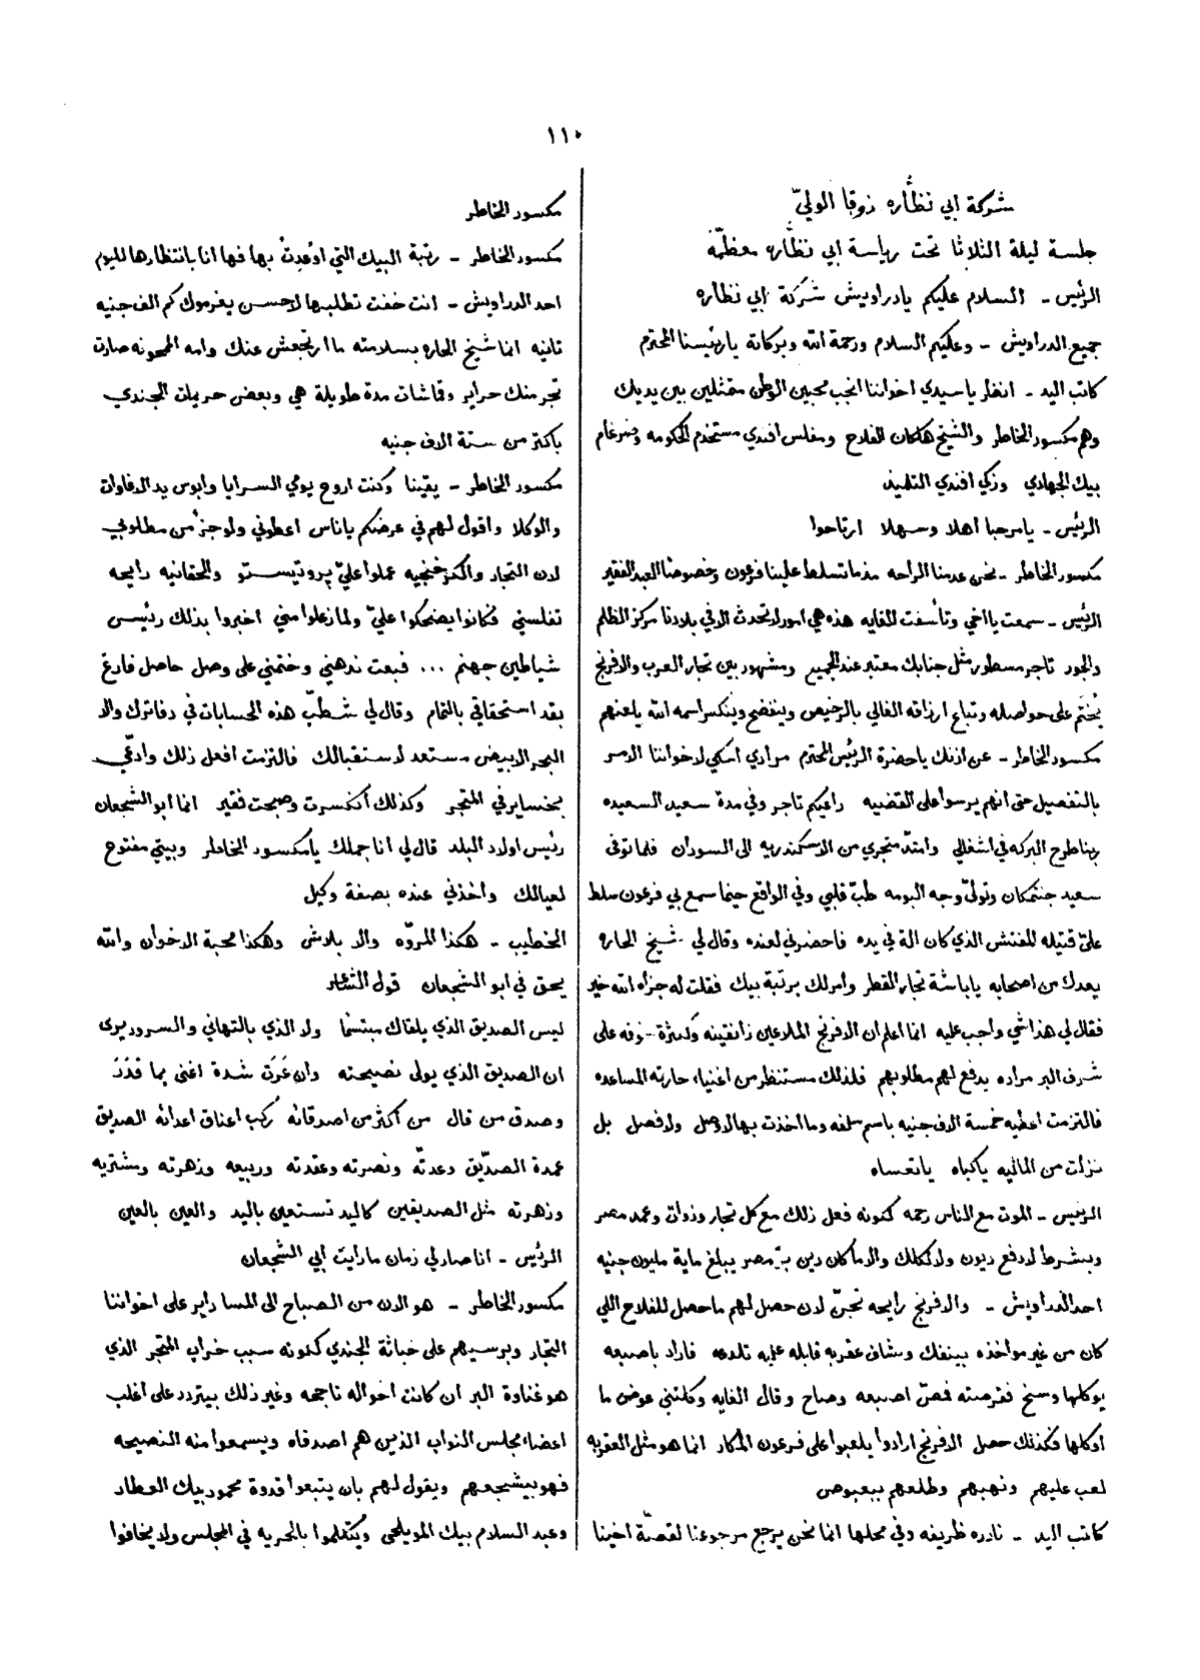 ١١٠
شركة ابي نظاره زوقا الوليّ
جلسة ليلة الثلاثا تحت رياسة ابي نظاره معظمة
الرئيس - السلام عليكم يا دراويش شركة ابي نظاره
جميع الدراويش - وعليكم السلام ورحمة الله وبركاته يا رئيسنا المحترم
كاتب اليد - انظر يا سيدي اخواننا انجب محبين الوطن متمثلين بين يديك
وهم مكسور الخاطر والشيخ هلكان الفلاح ومفلس افندي مستخدم الحكومه وضرغام
بيك الجهادي وزكي افندي التلميذ
الرئيس - يا مرحبا اهلا وسهلا ارتاحوا
مكسور الخاطر - نحن عدمنا الراحه مذ ما تسلط علينا فرعون وخصوصا العبد الفقير
الرئيس - سمعت يا اخي وتأسفت للغايه هذه هي امور لا تحدث الا في بلادنا مركز الظلم
والجور تاجر مسطور مثل جنابك معتبر عند الجميع ومشهور بين تجار العرب والافرنج
يُختم على حواصله وتباع ارزاقه الغالي بالرخيص وينفضح وينكسر اسمه الله يلعنهم
مكسور الخاطر - عن اذنك يا حضرة الرئيس المحترم مرادي احكي لاخواننا الامر
بالتفصيل حتى انهم يرسوا على القضيه راعيكم تاجر وفي مدة سعيد السعيده
ربنا طرح البركه في اشغالي وامتدّ متجري من الاسكندريه الى السودان فلما توفى
سعيد جنتمكان وتولّى وجه البومه طبّ قلبي وفي الواقع حينما سمع بي فرعون سلط
عليّ قتيله المفتش الذي كان الة في يده فاحضرني لعنده وقال لي شيخ الحاره
يعدك من اصحابه يا باشة تجار القطر وامر لك برتبة بيك فقلت له جزاه الله خير
فقال لي هذا شي واجب عليه انما اعلم ان الافرنج الملاعين زانقينه ولكثرة خوفه على
شرف البر مراده يدفع لهم مطلوبهم فلذلك مستنظر من اغنياء حارته المساعده
فالتزمت اعطيه خمسة الاف جنيه باسم سلفه وما اخذت بها لا وصل ولا فصل بل
نزلت من الماليه يا كباه يا تعساه
الرئيس - الموت مع الناس رحمه كونه فعل ذلك مع كل تجار وذوات وعمد مصر
وبشرط لا دفع ديون ولا لكلك والا ما كان دين برّ مصر يبلغ ماية مليون جنيه
احد الدراويش - والافرنج رايحه تجنّ لان حصل لهم ما حصل للفلاح اللي
كان من غير مواخذه بينفك وشاف عقربه قابله عليه تلدعه فاراد باصبعه
يوكلها وسخ فقرصته فمصّ اصبعه وصاح وقال الغايه وكلتني عوض ما
اوكلها فكذلك حصل الافرنج ارادوا يلعبوا على فرعون المكار انما هو مثل العقربه
لعب عليهم ونهبهم وطلعهم ببعبوص
كاتب اليد - نادره ظريفه وفي محلها انما نحن يرجع مرجوعنا لقصة اخينا
مكسور الخاطر
مكسور الخاطر - رتبة البيك التي اوعدت بها فها انا بانتظارها لليوم
احد الدراويش - انت خفت تطلبها لاحسن يغرموك كم الف جنيه
تانيه انما شيخ الحاره بسلامته ما ارتجعش عنك وامه المحجونه صارت
تجر منك حراير وقاشات مدة طويلة هي وبعض حريمات الجندي
باكتر من ستة الاف جنيه
مكسور الخاطر - يقينا وكنت اروح يومي السرايا وابوس يد الاغاوات
والوكلا واقول لهم في عرضكم يا ناس اعطوني ولو جزأ من مطلوبي
لان التجار والكرخنجيه عملوا عليّ پروتيستو والحقانيه رايحه
تفلسني فكانوا يضحكوا عليّ ولما زعلوا مني اخبروا بذلك رئيس
شياطين جهنم ... فبعت ندهني وختمني على وصل حاصل فارغ
بقد استحقاقي بالتمام وقال لي شطّب هذه الحسابات في دفاترك والا
البحر الابيض مستعد لاستقبالك فالتزمت افعل ذلك وادّعي
بخساير في المتجر وكذلك أنكسرت وصبحت فقير انما ابو الشجعان
رئيس اولاد البلد قال لي انا جملك يا مكسور الخاطر وبيتي مفتوح
لعيالك واخذني عنده بصفة وكيل
الخطيب - هكذا المروّه والا بلاوش وهكذا محبة الاخوان والله
يحق في ابو الشجعان قول الشاعر
ليس الصديق الذي يلقاك مبتسما ولا الذي بالتهاني والسرور يرى
ان الصديق الذي يولى نصيحته وان عَرَت شدة اغنى بما قدَرَ
وصدق من قال من أكثر من اصدقائه ركب اعناق اعدائه الصديق
عمدة الصدّيق وعدتّه ونصرته وعقدته وربيعه وزهرته ومشتريه
وزهرته مثل الصديقين كاليد تستعين باليد والعين بالعين
الرئيس - انا صار لي زمان ما رايت ابي الشجعان
مكسور الخاطر - هو الان من الصباح الى المسا داير على اخواننا
التجار وبرسيهم على خباثة الجندي كونه سبب خراب المتجر الذي
هو غناوة البر ان كانت احواله ناجحه وغير ذلك بيتردد على اغلب
اعضاء مجلس النواب الذين هم اصدقاه ويسمعوا منه النصيحه
فهو بيشجعهم ويقول لهم بان يتبعوا قدوة محمود بيك العطار
وعبد السلام بيك المويلحي ويتكلموا بالحريه في المجلس ولا يخافوا